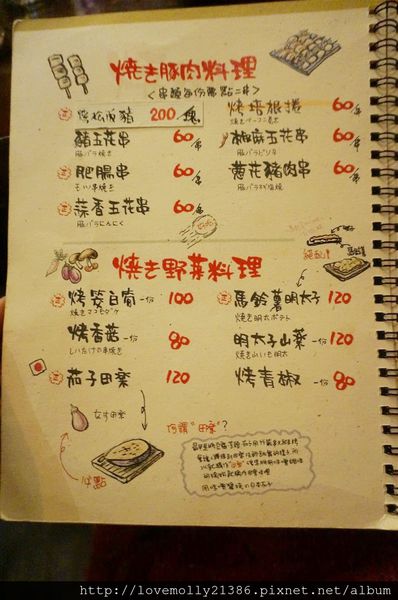 焼き豚肉料理
<串類每份需點二串>
烤松阪豬 200 塊
烤培根捲 60/串
焼きベーコン巻き
豬五花串 60/串
豚バラ焼き
椒麻五花串 60/串
豚バラピリ辛
肥腸串 60/串
モツ串焼き
黄花豬肉串 60/串
蒜香五花串 60/串
豚バラにんにく
焼き野菜料理
烤筊白筍 一份 100
焼きマコモダケ
馬鈴薯明太子 120
焼き明太ポテト
烤香菇 一份 80
しいたけの串焼き
明太子山薬 一份 120
焼き山いも明太
茄子田楽 120
なす田楽
烤青椒 一份 80
何謂"田楽"?
http://lovemolly21386.pixnet.net/album